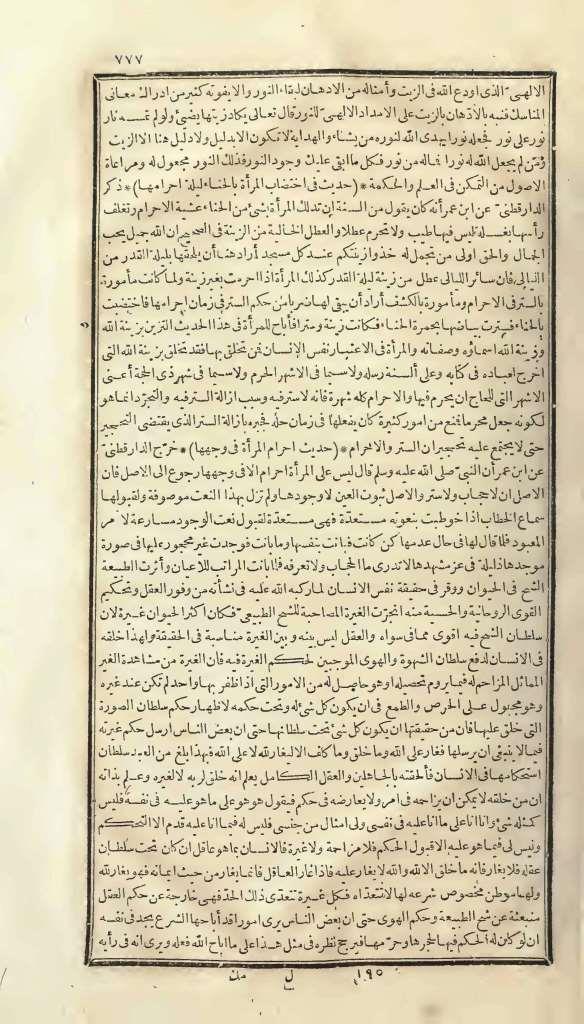 ٧٧٧
الالهىّ الذى أودع الله فى الزيت وأمثاله من الادهان لبقاء النور والايفوته كثير من ادراك معانى
المناسك فنبه بالادّهان بالزيت على الامداد الالهىّ للنور قال تعالى يكاد زيتها يضىء ولو لم تمسه نار
نور على نور فجعله نورا يهدى الله لنوره من يشاء والهداية لا تكون الا بدليل ولا دليل هنا الا الزيت
ومن لم يجعل الله له نورا فماله من نور فكل ما ابقى عليك وجود النور فذلك النور مجعول له ومراعاة
الاصول من التمكن فى العلم والحكمة * (حديث فى اختضاب المرأة بالحناء ليلة احرامها) * ذكر
الدارقطنىّ عن ابن عمر أنه كان يقول من السنة ان تدلك المرأة بشئ من الحناء عشية الاحرام وتغلف
رأسها بغسله ليس فيها طيب ولا تحرم عطلا والعطل الخالية من الزينة فى الصحيح ان الله جميل يحب
الجمال والحق اولى من تجمل له خذوا زينتكم عند كل مسجد أراد هنا أن يلحقها بليلة القدر من
الليالى فان سائر الليالى عطل من زينة ليلة القدر كذلك المرأة اذا احرمت بغير زينة ولما كانت مأمورة
بالستر فى الاحرام ومأمورة بالكشف أراد أن يبقى لها ضربا من حكم الستر فى زمان احرامها فاختضبت
بالحناء فسترت بياضها بحمرة الحناء فكانت زينة وسترا فأباح للمرأة فى هذا الحديث التزين بزينة الله
وزينة الله اسماؤه وصفاته والمرأة فى الاعتبار نفس الانسان فمن تخلق بها فقد تخلق بزينة الله التى
اخرج لعباده فى كتابه وعلى ألسنة رسله ولا سيما فى الاشهر الحرم ولا سيما فى شهر ذى الحجة أعنى
الاشهر التى للحاج ان يحرم فيها والاحرام كله شهرة فانه لا ستر فيه وسبب ازالة الستر فيه والتجرّد انما هو
لكونه جعل محرما فمنع من امور كثيرة كان يفعلها فى زمان حله فجبره بازالة الستر الذى يقتضى التحجير
حتى لا يجتمع عليه تحجيران الستر والاحرام * (حديث احرام المرأة فى وجهها) * خرّج الدارقطنىّ
عن ابن عمر أن النبىّ صلى الله عليه وسلم قال ليس على المرأة احرام الا فى وجهها رجوع الى الاصل فان
الاصل ان لا حجاب ولا ستر والاصل ثبوت العين لا وجودها ولم تزل بهذا النعت موصوفة ولقبولها
سماع الخطاب اذا خوطبت بنعوته مستعدّة فهى مستعدّة لقبول نعت الوجود مسارعة لامر
المعبود فلما قال لها فى حال عدمها كن كانت فبانت بنفسها وما بانت فوجدت غير محجور عليها فى صورة
موجدها ذليلة فى عز مشهدها لا تدرى ما الحجاب ولا تعرفه فلما بانت المراتب للاعيان وأثرت الطبيعة
الشح فى الحيوان ووفر فى حقيقة نفس الانسان لما ركبه الله عليه فى نشأته من وفور العقل وتحكيم
القوى الروحانية والحسية منه انجرّت الغيرة المصاحبة للشح الطبيعىّ فكان اكثر الحيوان غيرة لان
سلطان الشح فيه اقوى مما فى سواه والعقل ليس بينه وبين الغيرة مناسبة فى الحقيقة ولهذا خلقه
فى الانسان لدفع سلطان الشهوة والهوى الموجبين لحكم الغيرة فيه فان الغيرة من مشاهدة الغير
المماثل المزاحم له فيما يروم تحصيله او هو حاصل له من الامور التى اذا ظفر بها واحد لم تكن عند غيره
وهو مجبول على الحرص والطمع فى ان يكون كل شئ له وتحت حكمه لاظهار حكم سلطان الصورة
التى خلق عليها فان من حقيقتها ان يكون كل شئ تحت سلطانها حتى ان بعض الناس ارسل حكم غيرته
فيما لا ينبغى ان يرسلها فغار على الله وما خلق وما كلف الا ليغار لله لا على الله فبهذا بلغ من العبد سلطان
استحكامها فى الانسان فألحقته بالجاهلين والعقل الكامل يعلم انه خلق لربه لا لغيره وعلم بذاته
ان من خلقه لا يمكن ان يزاحمه فى امر ولا يعارضه فى حكم فيقول هو هو على ما هو عليه فى نفسه فليس
كمثله شئ وانا انا على ما انا عليه فى نفسى ولى امثال من جنسى فليس له فيما انا عليه قدم الا التحكم
وليس لى فيما هو عليه الا قبول الحكم فلا مزاحمة ولا غيرة فالانسان بما هو عاقل ان كان تحت سلطان
عقله فلا يغار فانه ما خلق الا لله والله لا يغار عليه فاذا غار العاقل فانما يغار من حيث ايمانه فهو يغار لله
ولها موطن مخصوص شرعه لها لا تتعداه فكل غيرة تتعدى ذلك الحدّ فهى خارجة عن حكم العقل
منبعثة عن شح الطبيعة وحكم الهوى حتى ان بعض الناس يرى امورا قد أباحها الشرع يجد فى نفسه
ان لو كان له الحكم فيها لحجرها وحرّمها فيرجح نظره فى مثل هذا على ما اباح الله فعله ويرى انه فى رأيه
١٩٥ ل مك